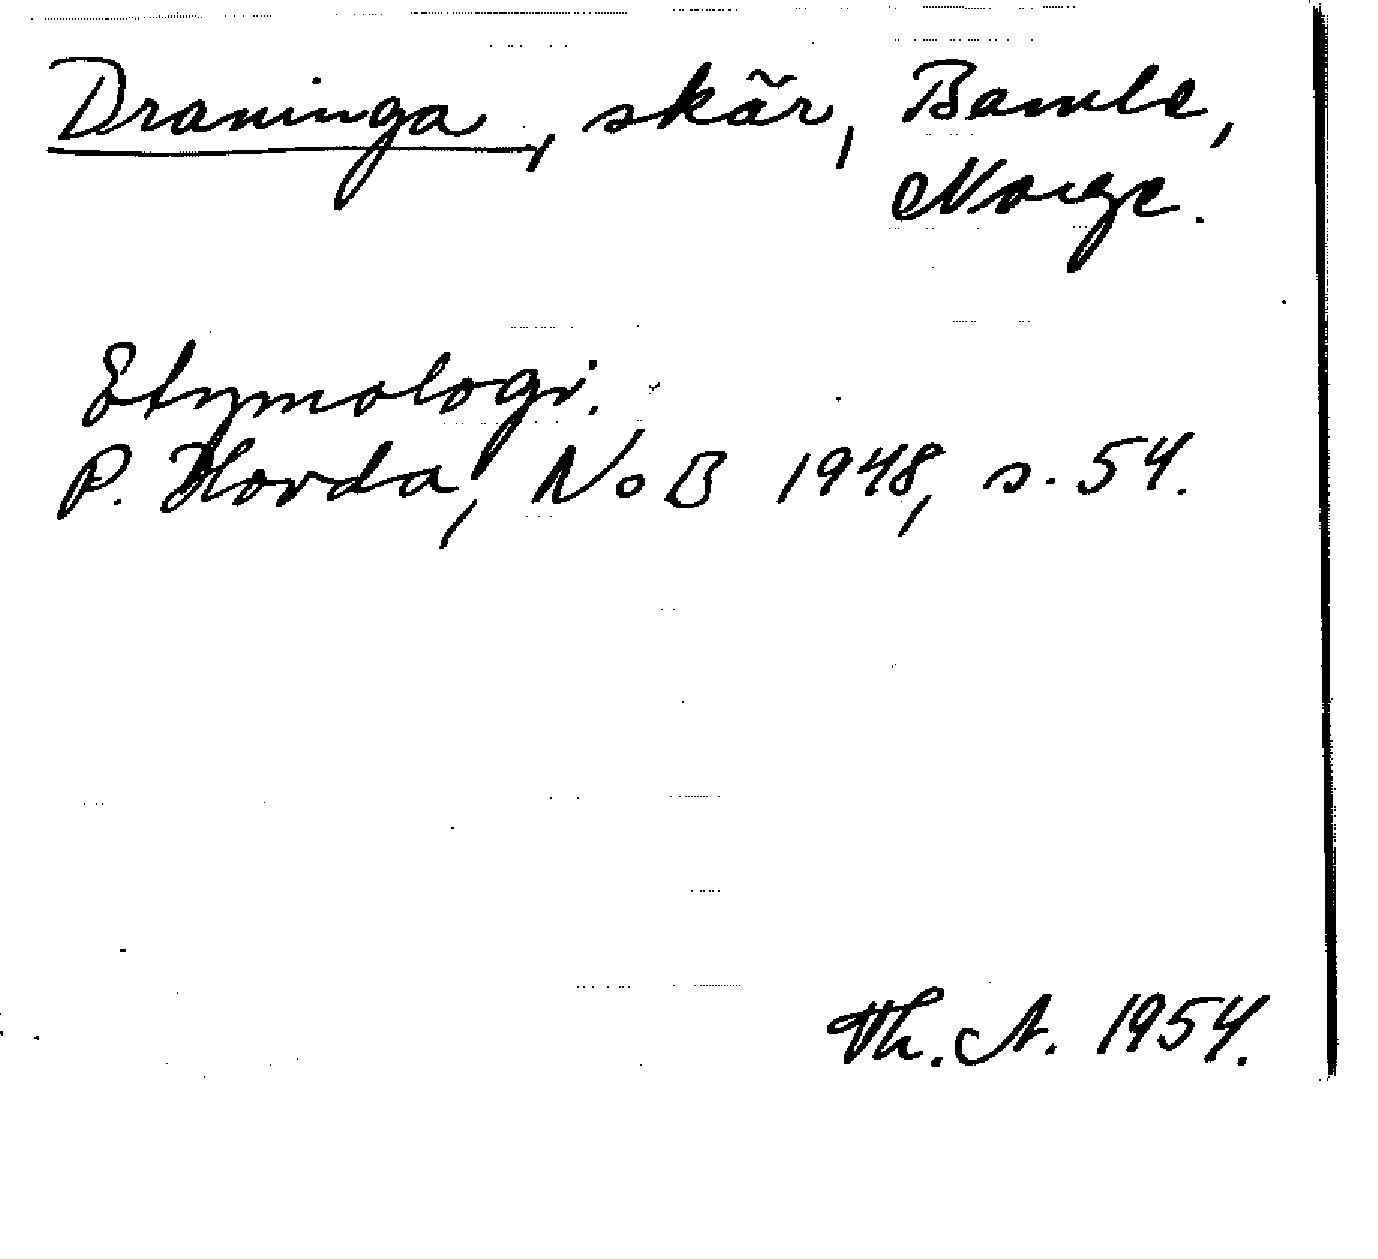 Draninga, skär, Bamle,
Norge.
Etymologi.
P. Hovda, NoB 1948, s. 54.
Th. A. 1954.